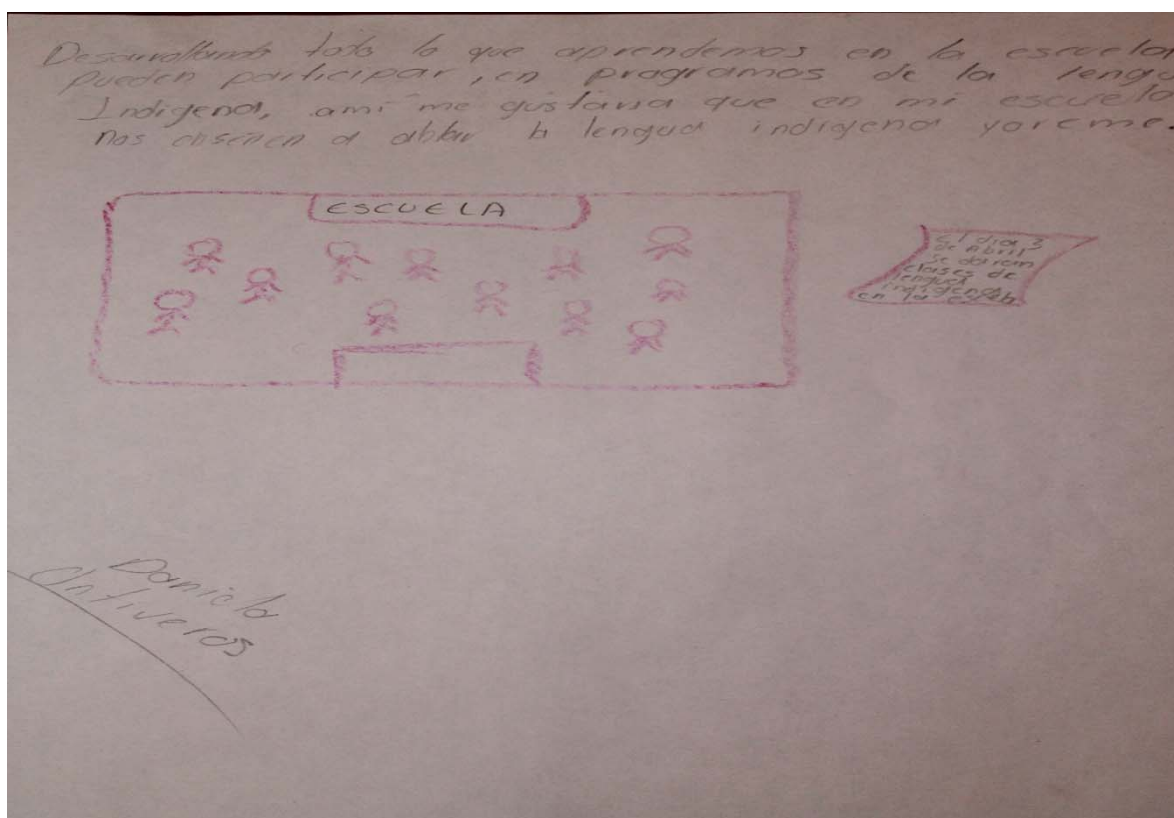 Desarrollando todo lo que aprendemos en la escuela
pueden participar, en programas de la lengua
Indígena, ami me gustaria que en mi escuela
nos enseñen a ablar la lengua indigena yoreme.
ESCUELA
El dia 3
de Abril
se daran
clases de
lengua
indigena
en la
Daniela
Ontiveros